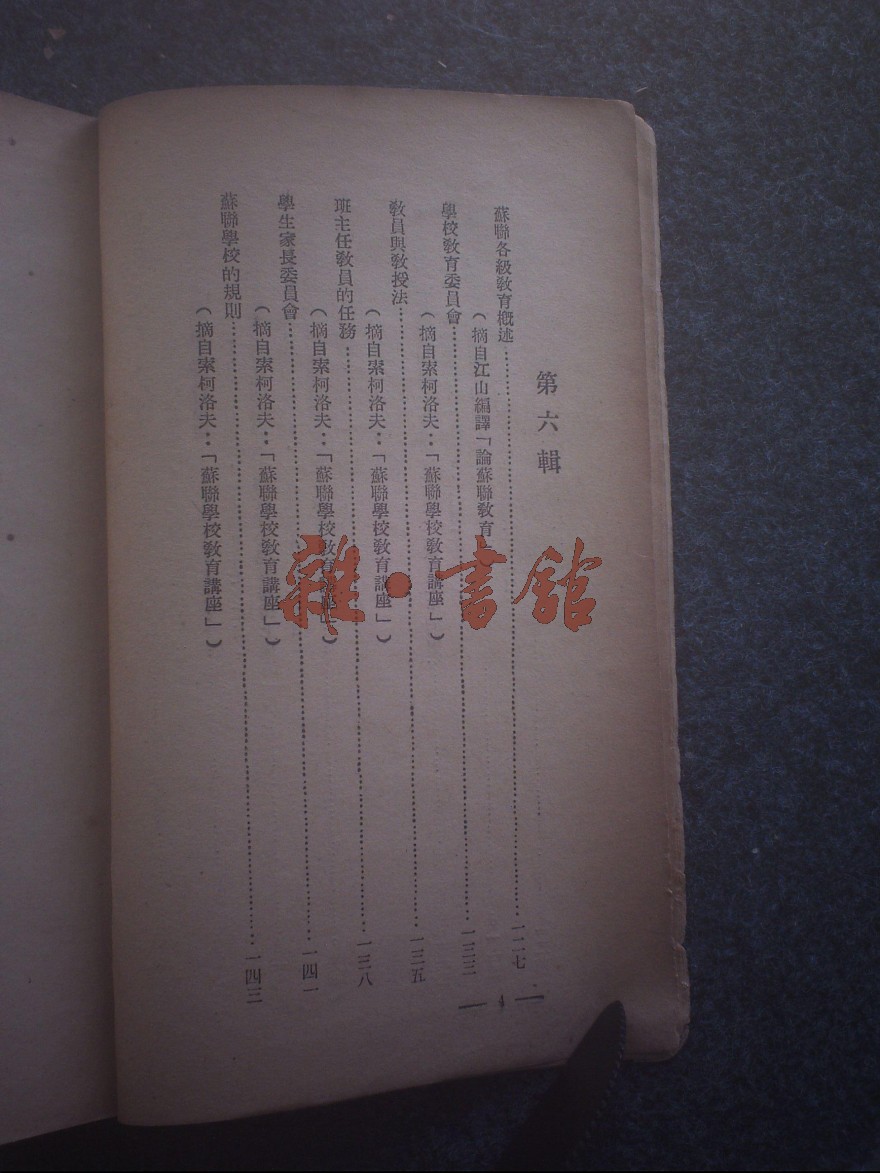 第六輯
蘇聯各級教育概述……一二七
（摘自江山編譯「論蘇聯教育」）
學校教育委員會……一三三
（摘自索柯洛夫：「蘇聯學校教育講座」）
教員與教授法……一三五
（摘自索柯洛夫：「蘇聯學校教育講座」）
班主任教員的任務……一三八
（摘自索柯洛夫：「蘇聯學校教育講座」）
學生家長委員會……一四一
（摘自索柯洛夫：「蘇聯學校教育講座」）
蘇聯學校的規則……一四三
（摘自索柯洛夫：「蘇聯學校教育講座」）
— 4 —
雜·書館